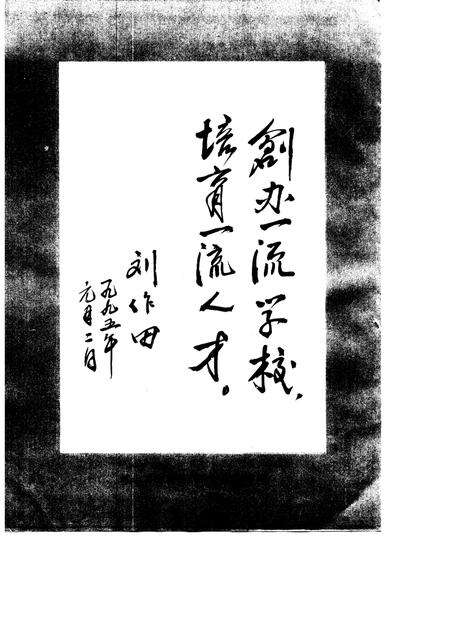 創办一流学校，
培育一流人才。
刘作田
一九九五年
元月二日